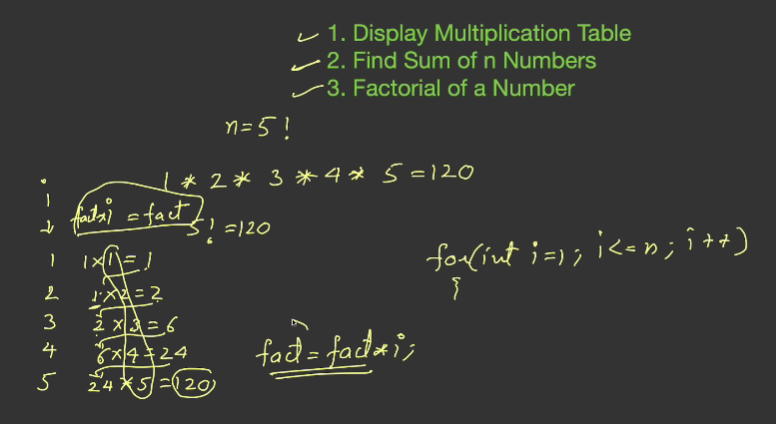 1. Display Multiplication Table
2. Find Sum of n Numbers
3. Factorial of a Number
n=5!
1 * 2 * 3 * 4 * 5 = 120
i
fact*i = fact
5! = 120
for(int i=1; i<=n; i++)
{
1 1×1=1
2 1×2=2
3 2×3=6
4 6×4=24
5 24*5=120
fact = fact*i;